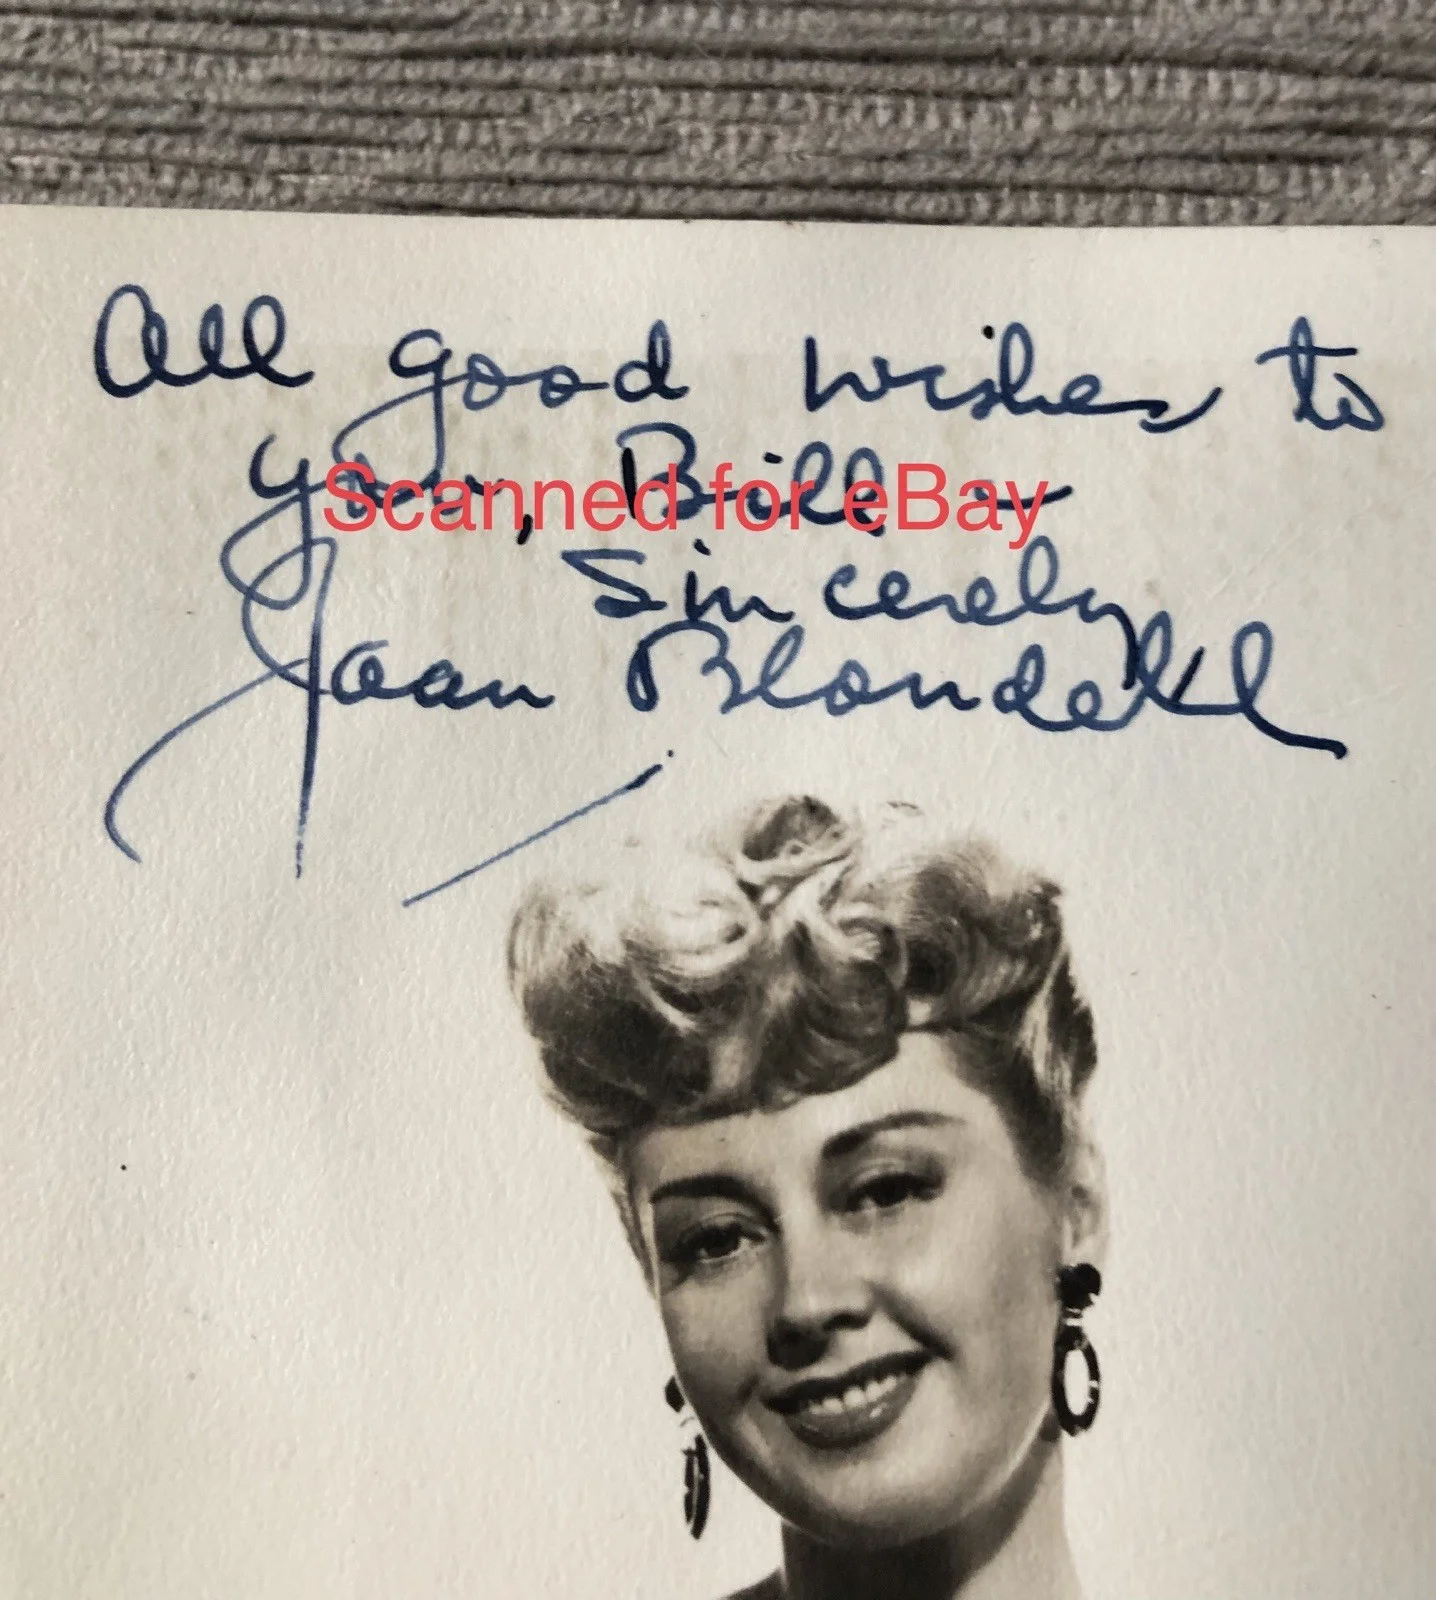 All good wishes to
you, Bill –
Scanned for eBay
Sincerely
Joan Blondell